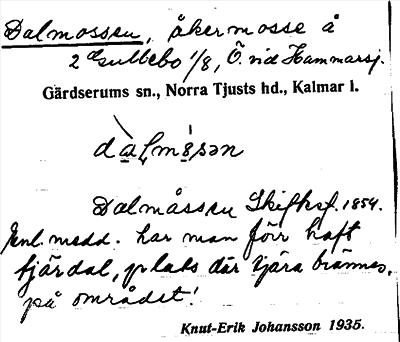 Dalmossen, åkermosse å
2 Gullebo 1/8, Ö. vid Hammarsj.
Gärdserums sn., Norra Tjusts hd., Kalmar l.
Dalmåssen Skifksf. 1854.
Enl. medd. har man förr haft
tjärdal, plats där tjära brännes,
på området!
Knut-Erik Johansson 1935.